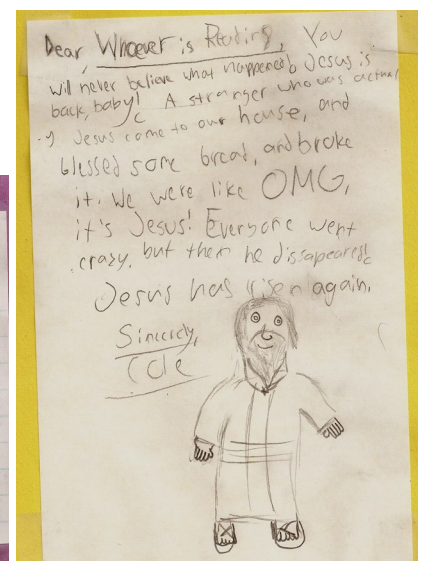 Dear, Whoever is Reading, You
will never believe what happened! Jesus is
back, baby! A stranger who was actual
-y Jesus come to our house, and
blessed some bread, and broke
it. We were like OMG,
it's Jesus! Everyone went
crazy. but then he dissapeared!
Jesus has risen again.
Sincerely,
Cole